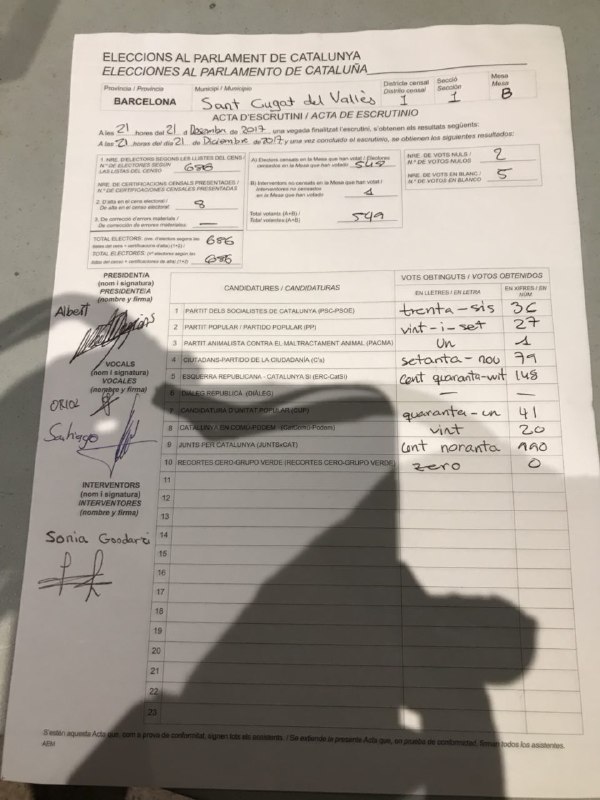 ELECCIONS AL PARLAMENT DE CATALUNYA
ELECCIONES AL PARLAMENTO DE CATALUÑA
Província / Provincia
BARCELONA
Municipi / Municipio
Sant Cugat del Vallès
Districte censal
Distrito censal
1
Secció
Sección
1
Mesa
Mesa
B
ACTA D'ESCRUTINI / ACTA DE ESCRUTINIO
A les 21 hores del 21 de Desembre de 2017, una vegada finalitzat l'escrutini, s'obtenen els resultats següents:
A las 21 horas del día 21 de Diciembre de 2017 y una vez concluido el escrutinio, se obtienen los siguientes resultados:
1. NRE. D'ELECTORS SEGONS LES LLISTES DEL CENS /
N.º DE ELECTORES SEGÚN
LAS LISTAS DEL CENSO
686
NRE. DE CERTIFICACIONS CENSALS PRESENTADES /
N.º DE CERTIFICACIONES CENSALES PRESENTADAS
2. D'alta en el cens electoral /
De alta en el censo electoral
8
3. De correcció d'errors materials /
De corrección de errores materiales
—
TOTAL ELECTORS
686
TOTAL ELECTORES
686
A) Electors censats en la Mesa que han votat / Electores
censados en la Mesa que han votado
548
B) Interventors no censats en la Mesa que han votat /
Interventores no censados en la Mesa
que han votado
1
Total votants (A+B) /
Total votantes (A+B)
549
NRE. DE VOTS NULS /
N.º DE VOTOS NULOS
2
NRE. DE VOTS EN BLANC /
N.º DE VOTOS EN BLANCO
5
PRESIDENT/A
(nom i signatura)
PRESIDENTE/A
(nombre y firma)
Albert
VOCALS
(nom i signatura)
VOCALES
(nombre y firma)
ORIOL
Santiago
INTERVENTORS
(nom i signatura)
INTERVENTORES
(nombre y firma)
Sonia Goodarzi
CANDIDATURES / CANDIDATURAS
VOTS OBTINGUTS / VOTOS OBTENIDOS
EN LLETRES / EN LETRA
EN XIFRES / EN NÚM
1 PARTIT DELS SOCIALISTES DE CATALUNYA (PSC-PSOE) trenta-sis 36
2 PARTIT POPULAR / PARTIDO POPULAR (PP) vint-i-set 27
3 PARTIT ANIMALISTA CONTRA EL MALTRACTAMENT ANIMAL (PACMA) Un 1
4 CIUTADANS-PARTIDO DE LA CIUDADANÍA (C's) setanta-nou 79
5 ESQUERRA REPUBLICANA - CATALUNYA SÍ (ERC-CatSí) Cent quaranta-wit 148
6 DIÀLEG REPUBLICÀ (DIÀLEG) — —
7 CANDIDATURA D'UNITAT POPULAR (CUP) quaranta-un 41
8 CATALUNYA EN COMÚ-PODEM (CatComú-Podem) vint 20
9 JUNTS PER CATALUNYA (JUNTSxCAT) Cent noranta 190
10 RECORTES CERO-GRUPO VERDE (RECORTES CERO-GRUPO VERDE) zero 0
11
12
13
14
15
16
17
18
19
20
21
22
23
S'estén aquesta Acta que, com a prova de conformitat, signen tots els assistents. / Se extiende la presente Acta que, en prueba de conformidad, firman todos los asistentes.
AEM